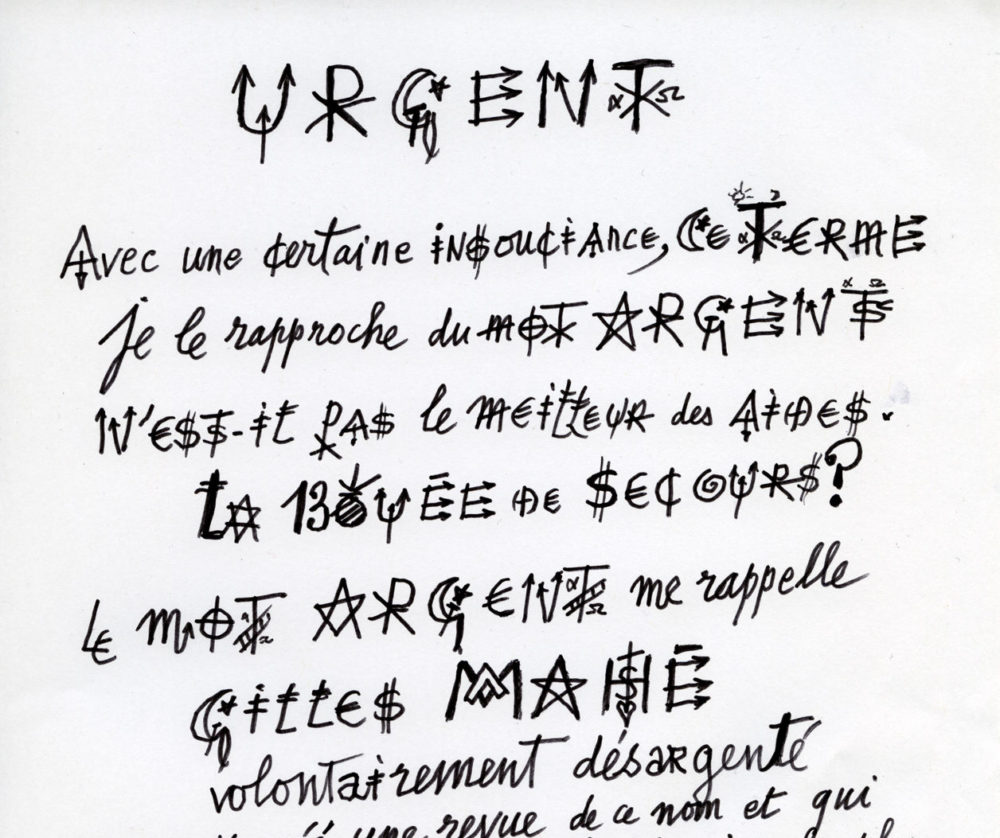 URGENT
Avec une certaine insouciance, CE TERME
je le rapproche du MOT ARGENT
N'EST-il PAS le MEILLEUR des AIDES.
LA 13OUÉE DE SECOURS?
Le MOT ARGENT me rappelle
GILLES MAHÉ
volontairement désargenté
une revue de ce nom et qui